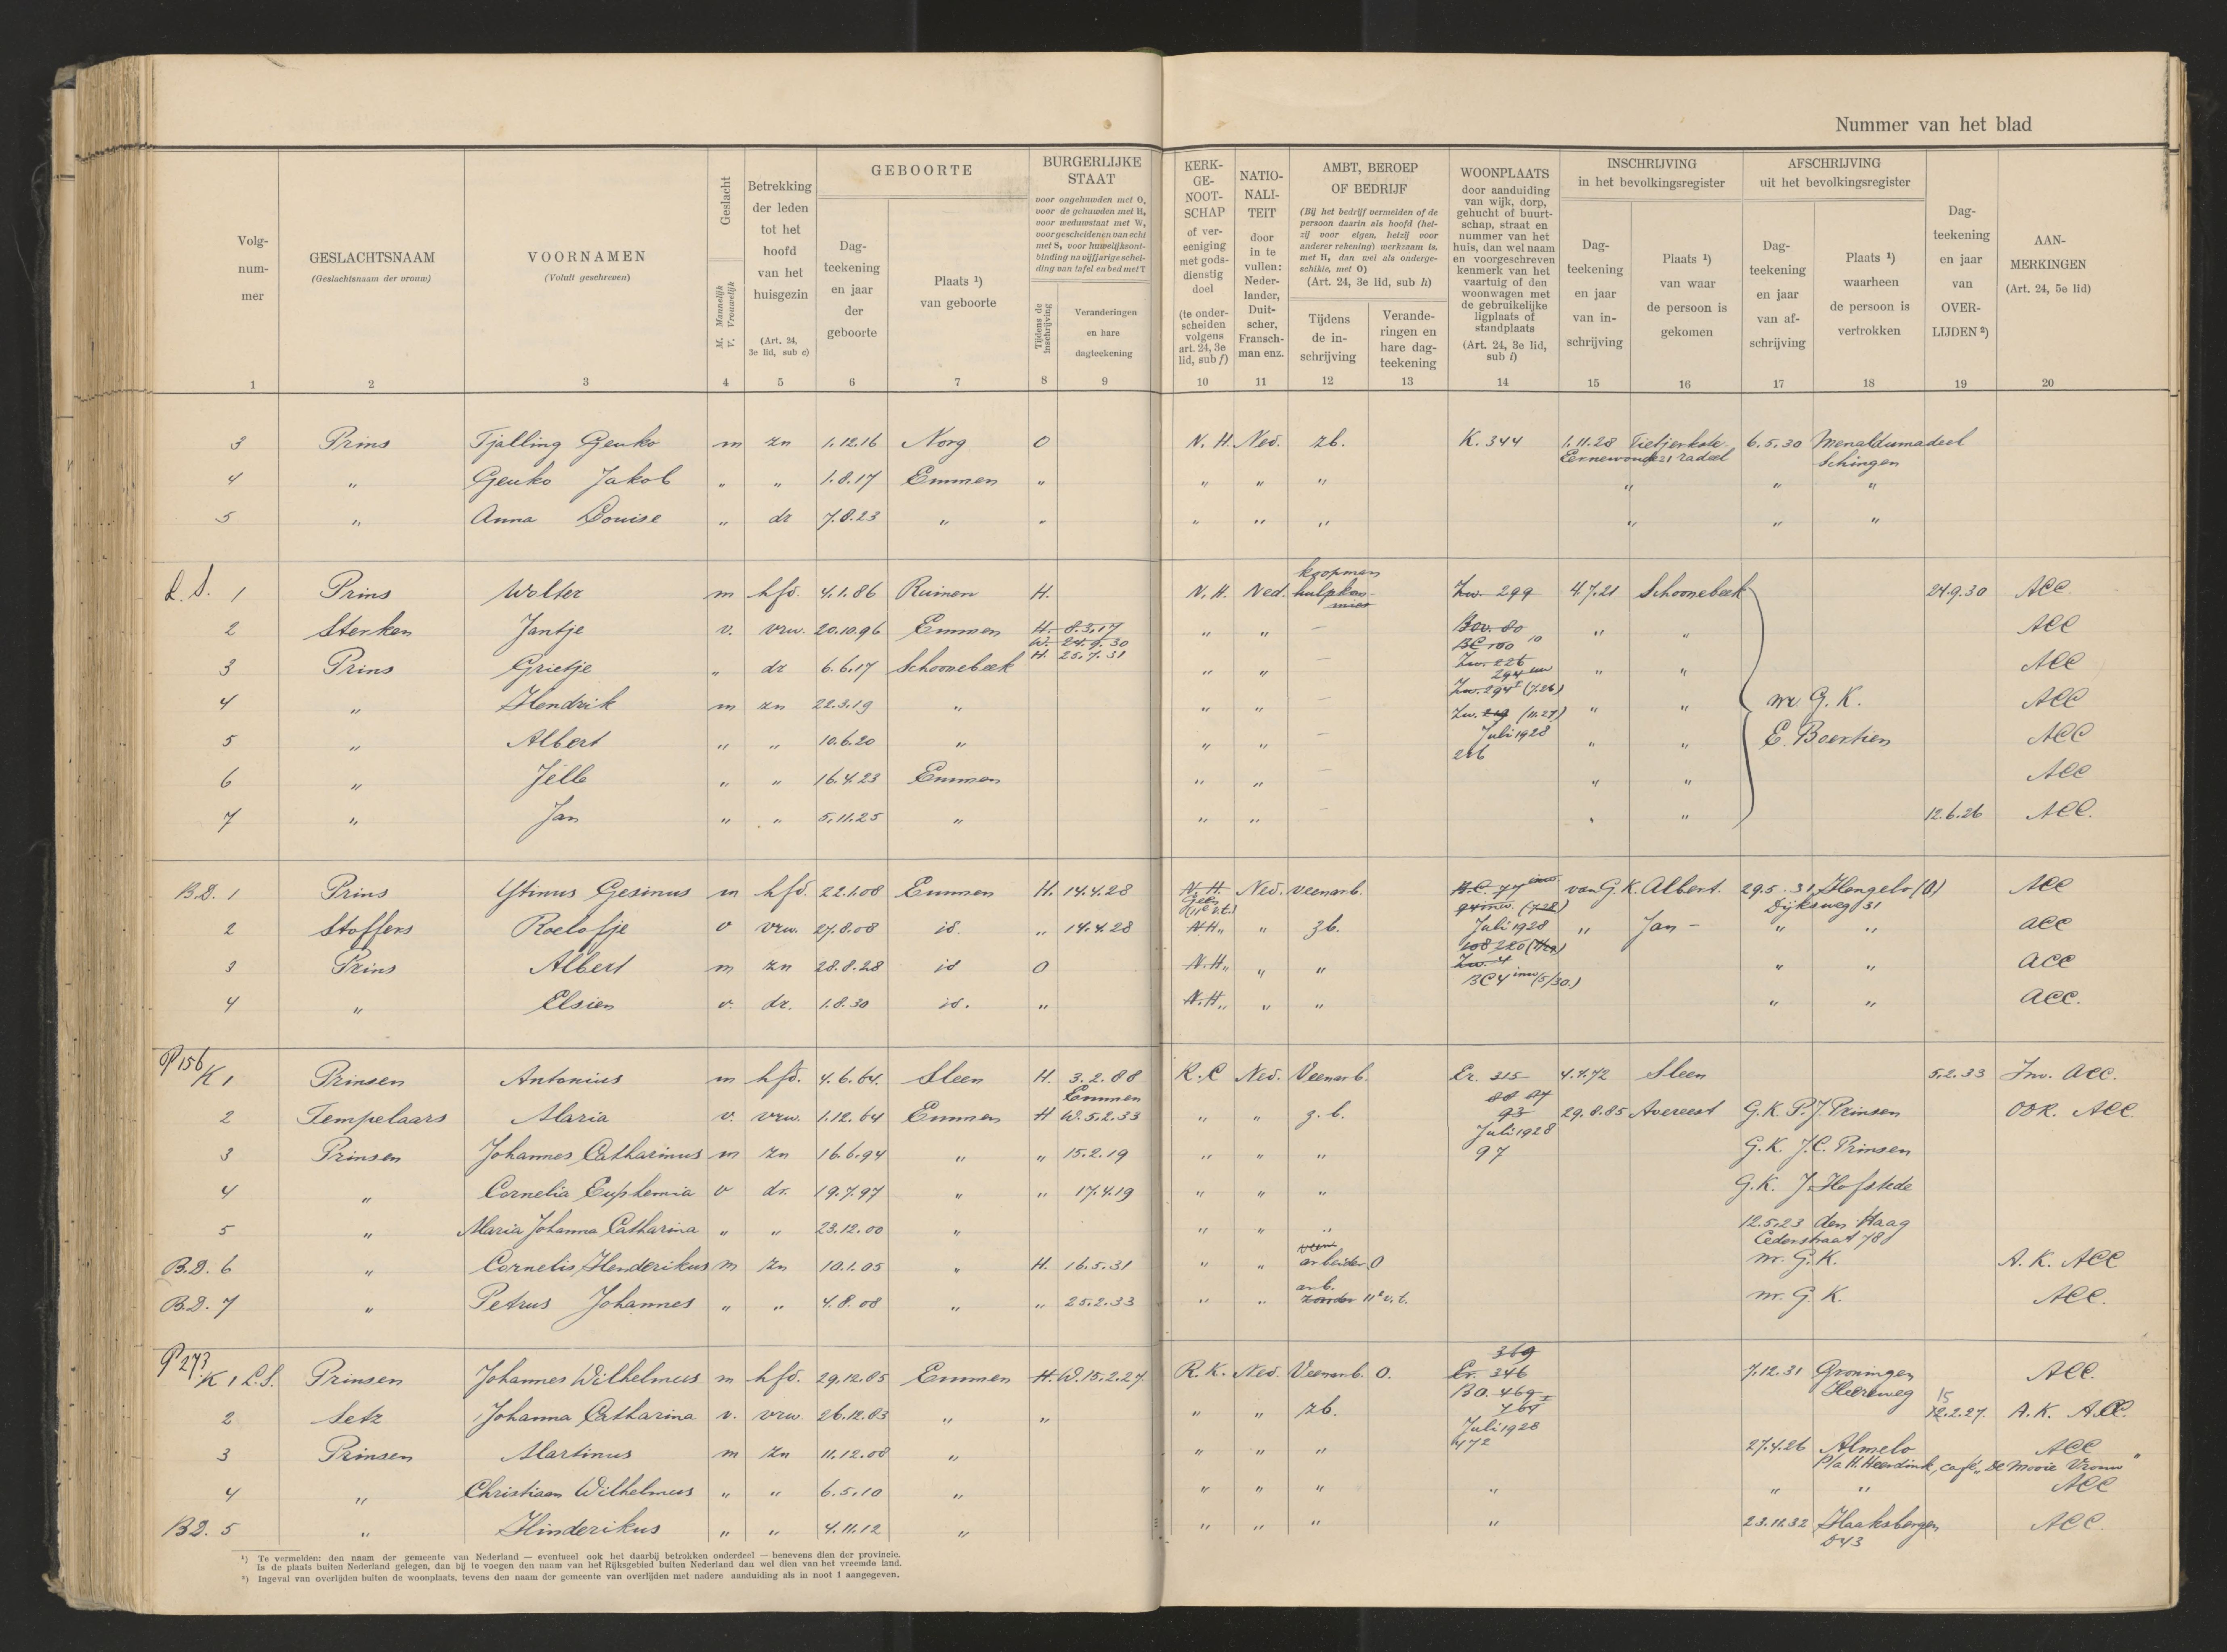 Nummer van het blad
Volgnummer
GESLACHTSNAAM
(Geslachtsnaam der vrouw)
VOORNAMEN
(Voluit geschreven)
Geslacht
M. Mannelijk
V. Vrouwelijk
Betrekking
der leden
tot het
hoofd
van het
huisgezin
(Art. 24,
3e lid, sub c)
GEBOORTE
Dag-
teekening
en jaar
der
geboorte
Plaats ¹)
van geboorte
BURGERLIJKE
STAAT
voor ongehuwden met O,
voor de gehuwden met H,
voor weduwstaat met W,
voor gescheidenen van echt
met S, voor huwelijksont-
binding na vijfjarige schei-
ding van tafel en bed met T
Tijdens de
inschrijving
Veranderingen
en hare
dagteekening
KERK-
GE-
NOOT-
SCHAP
of ver-
eeniging
met gods-
dienstig
doel
(te onder-
scheiden
volgens
art. 24, 3e
lid, sub f)
NATIO-
NALI-
TEIT
door
in te
vullen:
Neder-
lander,
Duit-
scher,
Fransch-
man enz.
AMBT, BEROEP
OF BEDRIJF
(Bij het bedrijf vermelden of de
persoon daarin als hoofd (het-
zij voor eigen, hetzij voor
anderer rekening) werkzaam is,
met H, dan wel als onderge-
schikte, met O)
(Art. 24, 3e lid, sub h)
Tijdens
de in-
schrijving
Verande-
ringen en
hare dag-
teekening
WOONPLAATS
door aanduiding
van wijk, dorp,
gehucht of buurt-
schap, straat en
nummer van het
huis, dan wel naam
en voorgeschreven
kenmerk van het
vaartuig of den
woonwagen met
de gebruikelijke
ligplaats of
standplaats
(Art. 24, 3e lid,
sub i)
INSCHRIJVING
in het bevolkingsregister
Dag-
teekening
en jaar
van in-
schrijving
Plaats ¹)
van waar
de persoon is
gekomen
AFSCHRIJVING
uit het bevolkingsregister
Dag-
teekening
en jaar
van af-
schrijving
Plaats ¹)
waarheen
de persoon is
vertrokken
Dag-
teekening
en jaar
van
OVER-
LIJDEN ²)
AAN-
MERKINGEN
(Art. 24, 5e lid)
1 2 3 4 5 6 7 8 9 10 11 12 13 14 15 16 17 18 19 20
3 Prins Tjalling Geuko m zn 1.12.16 Norg O N.H. Ned. zb. K. 344 1.11.28 Tietjerkste- 6.5.30 Menaldumadeel
Eernewoude 21 radeel Schingen
4 " Geuko Jakob " " 1.8.17 Emmen " " " " " " "
5 " Anna Louise " dr 7.8.23 " " " " " " " "
koopman
L.S. 1 Prins Wolter m hfd. 4.1.86 Ruinen H. N.H. Ned. hulpkom- Zw. 299 4.7.21 Schoonebeek 24.9.30 ACC
mies
2 Sterken Jantje v. vrw. 20.10.96 Emmen H. 8.3.17 " " — Bov. 80 " " ACC
W. 24.9.30 BC 100 10
H. 25.7.31
3 Prins Grietje " dr 6.6.17 Schoonebeek " " — Zw. 226 " " ACC
294
4 " Hendrik m zn 22.3.19 " " " — Zw. 294 I (7.26) " " nr G.K. ACC
Zw. 219 (11.27)
5 " Albert " " 10.6.20 " " " — Juli 1928 " " E. Boertien ACC
216
6 " Jelle " " 16.4.23 Emmen " " — " " ACC
7 " Jan " " 5.11.25 " " " — " 12.6.26 ACC.
B.D. 1 Prins Ytinus Gesinus m hfd. 22.1.08 Emmen H. 14.4.28 N.H Ned. veenarb. 77 inw. van G.K. Albert. 29.5.31 Hengelo (O) ACC
Geen Dijksweg 31
2 Stoffers Roelofje v vrw. 27.8.08 id. " 14.4.28 N.H. " zb. Juli 1928 " Jan – " " ACC
3 Prins Albert m zn 28.8.28 id O N.H. " " Zw. 4 " " ACC
BC 4 inw (5/30.)
4 " Elsien v. dr. 1.8.30 id. " N.H. " " " " ACC.
P 156
K 1 Prinsen Antonius m hfd. 4.6.64. Sleen H. 3.2.88 R.C Ned. Veenarb. Er. 315 4.4.72 Sleen 5.2.33 Inv. ACC.
Emmen
2 Tempelaars Maria v. vrw. 1.12.64 Emmen H W. 5.2.33 " " z.b. 93 29.8.85 Avereest G.K. P.J. Prinsen OOK. ACC.
Juli 1928
3 Prinsen Johannes Catharinus m zn 16.6.94 " " 15.2.19 " " " 97 G.K. J.C. Prinsen
4 " Cornelia Euphemia v dr. 19.7.97 " " 17.4.19 " " " G.K. J. Hofstede
5 " Maria Johanna Catharina " " 23.12.00 " " " " 12.5.23 den Haag
Cederstraat 78
veen
B.D. 6 " Cornelis Henderikus m zn 10.1.05 " H. 16.5.31 " " arbeider O nr. G.K. A.K. ACC
arb.
B.D. 7 " Petrus Johannes " " 4.8.08 " " 25.2.33 " " zonder 11e v.t. nr. G.K. ACC.
P 273 369
K 1 L.S. Prinsen Johannes Wilhelmus m hfd. 29.12.85 Emmen H. W. 15.2.27 R.K. Ned. Veenarb. O. Er. 346 7.12.31 Groningen ACC.
BO. 469 Heereweg 15
2 Setz Johanna Catharina v. vrw. 26.12.83 " " " " zb. 12.2.27. A.K. ACC.
Juli 1928
3 Prinsen Martinus m zn 11.12.08 " " " " 472 27.4.26 Almelo ACC
P/a H. Heerdink, café "De Mooie Vrouw"
4 " Christiaan Wilhelmus " " 6.5.10 " " " " " " " ACC
B.D. 5 " Hinderikus " " 4.11.12 " " " " " 23.11.32 Haaksbergen ACC.
D43
¹) Te vermelden: den naam der gemeente van Nederland — eventueel ook het daarbij betrokken onderdeel — benevens dien der provincie.
Is de plaats buiten Nederland gelegen, dan bij te voegen den naam van het Rijksgebied buiten Nederland dan wel dien van het vreemde land.
²) Ingeval van overlijden buiten de woonplaats, tevens den naam der gemeente van overlijden met nadere aanduiding als in noot 1 aangegeven.